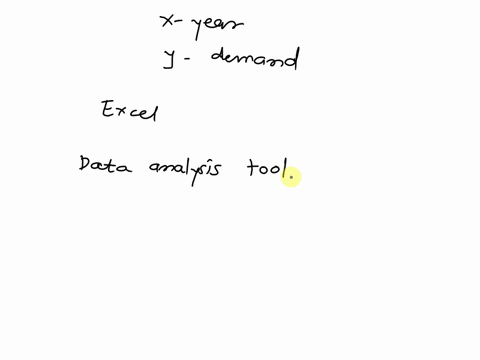 x- year
y - demand
Excel
Data analysis tool.